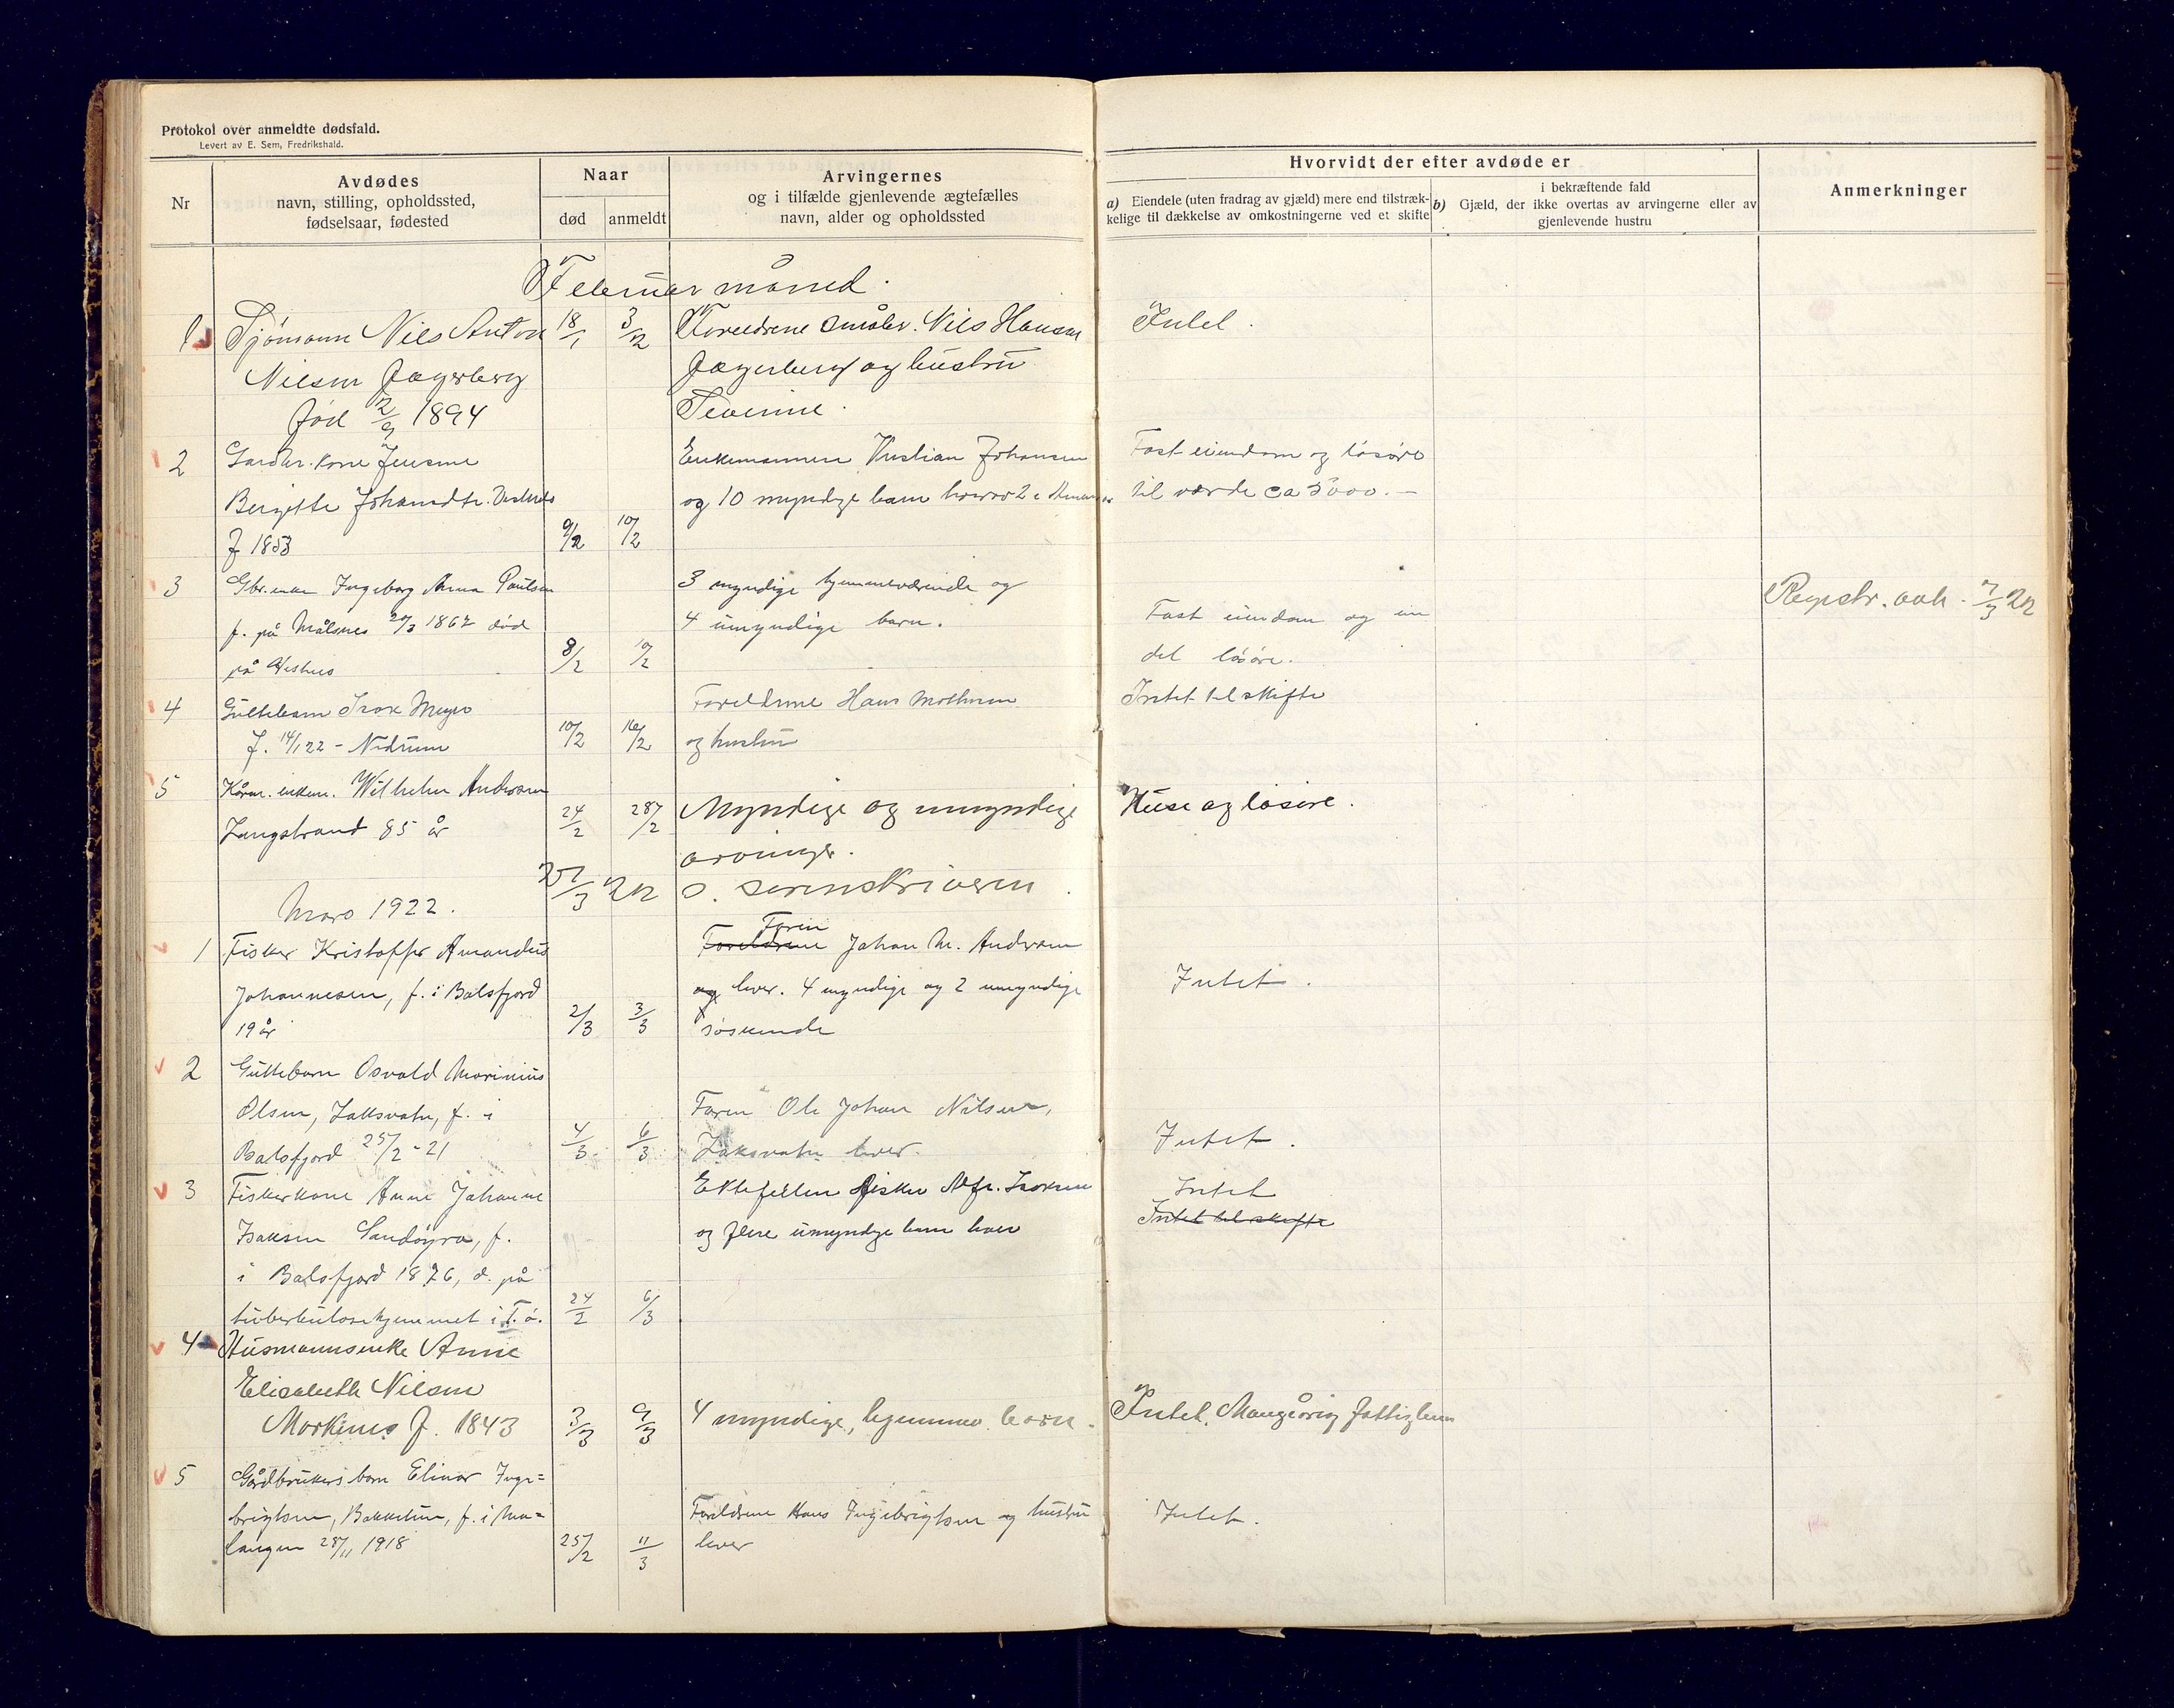 Protokol over anmeldte dødsfald.
Levert av E. Sem, Fredrikshald.
Nr
Avdødes
navn, stilling, opholdssted,
fødselsaar, fødested
Naar
død
anmeldt
Arvingernes
og i tilfælde gjenlevende ægtefælles
navn, alder og opholdssted
Hvorvidt der efter avdøde er
a) Eiendele (uten fradrag av gjæld) mere end tilstræk-
kelige til dækkelse av omkostningerne ved et skifte
i bekræftende fald
b) Gjæld, der ikke overtas av arvingerne eller av
gjenlevende hustru
Anmerkninger
Februar måned.
1 Sjømann Nils Anton 18/1 3/2 Foreldrene småbr. Nils Hansen Intet.
Nilsen Fagerberg Fagerberg og hustru
født 2/9 1894
2 Gardbr. kone Jensine Enkemannen Kristian Johansen Fast eiendom og løsøre
Bergitte Johansdtr. og 10 myndige barn hvorav 2 i til værde ca 5000.-
f 1853 9/2 10/2
3 Gbr. enke Ingeborg Anna Paulsen 3 myndige hjemmeværende og Registr. avh. 7/3 22
f. på Målsnes 20/3 1862 død 4 umyndige barn. Fast eiendom og en
på 8/2 10/2 del løsøre.
4 Guttebarn Isak Meyer Foreldrene Hans Mothisen Intet til skifte
f. 14/1 22 - 10/2 16/2 og hustru
5 Kårm. enkem. Wilhelm Andersen Myndige og umyndige Huse og løsøre.
Langstrand 85 år 24/2 28/2 arvinger.
27/3 22 S. sorenskriveren.
Mars 1922.
1 Fisker Kristoffer Amandus Foreldrene Faren Johan M. Andersen
Johannesen, f. i Balsfjord og lever. 4 myndige og 2 umyndige Intet.
19 år 2/3 3/3 søskende
2 Guttebarn Osvald Marinius
Olsen, Laksvatn, f. i Faren Ole Johan Nilsen,
Balsfjord 25/2 - 21 4/3 6/3 Laksvatn lever. Intet.
3 Fiskerkone Anne Johanne Ektefellen fisker Alfr. Isaksen Intet
Isaksen Sandøyra, f. og flere umyndige barn lever Intet til skifte
i Balsfjord 1876, d. på
tuberkulosehjemmet i T.ø. 24/2 6/3
4 Husmannsenke Anne
Elisabeth Nilsen
Morkenes f. 1843 3/3 9/3 4 myndige, hjemmev. barn. Intet. Mangeårig fattiglem
5 Gårdbrukers barn Elinor Inge=
brigtsen, Bakketun, f. i Ma= Foreldrene Hans Ingebrigtsen og hustru Intet.
langen 28/11 1918 25/2 11/3 lever